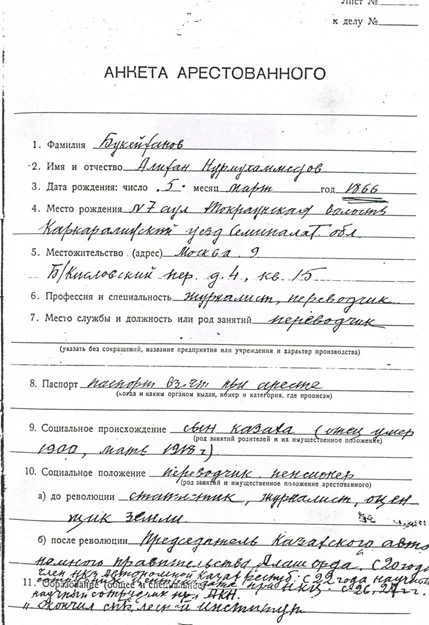 Лист №
к делу №
АНКЕТА АРЕСТОВАННОГО
1. Фамилия Букейханов
2. Имя и отчество Алихан Нурмухаммедов
3. Дата рождения: число „5" месяц март год 1866
4. Место рождения № 7 аул Токраунская волость
Каркаралинский уезд Семипалат обл
5. Местожительство (адрес) Москва 9
Б/Кисловский пер. д. 4, кв. 15
6. Профессия и специальность журналист, переводчик
7. Место службы и должность или род занятий переводчик
(указать без сокращений, название предприятия или учреждения и характер производства)
8. Паспорт паспорт взят при аресте
(когда и каким органом выдан, номер и категория, где прописан)
9. Социальное происхождение сын казаха (отец умер
(род занятий родителей и их имущественное положение)
1900, мать 1918 г)
10. Социальное положение переводчик пенсионер
(род занятий и имущественное положение арестованного)
а) до революции статистик, журналист, оцен
щик земли.
б) после революции Председатель Казахского авто
номного правительства Алаш орда. С 20 года
член автономной С 22 года научный
11. Образование (общее и специальное)
научный сотрудник АКН. 26, 27 г.
Окончил институт